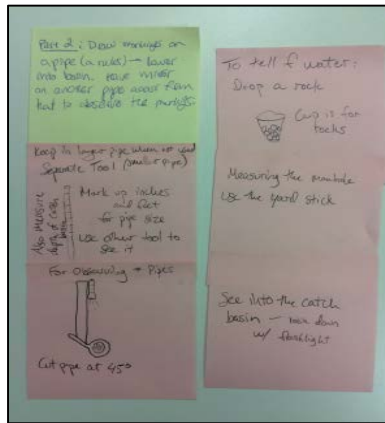 Part 2: Draw markings on
a pipe (a ruler) → lower
into basin. Have mirror
on another pipe
that to observe the markings.
Keep in larger pipe when not used
Separate Tool (smaller pipe)
Also measure
depth of catch
basin
Mark up inches
and feet
for pipe size
Use other tool to
see it
For Observing → Pipes
Cut pipe at 45°
To tell if water:
Drop a rock
Cup is for
rocks
Measuring the manhole
Use the yard stick
See into the catch
basin — look down
w/ flashlight